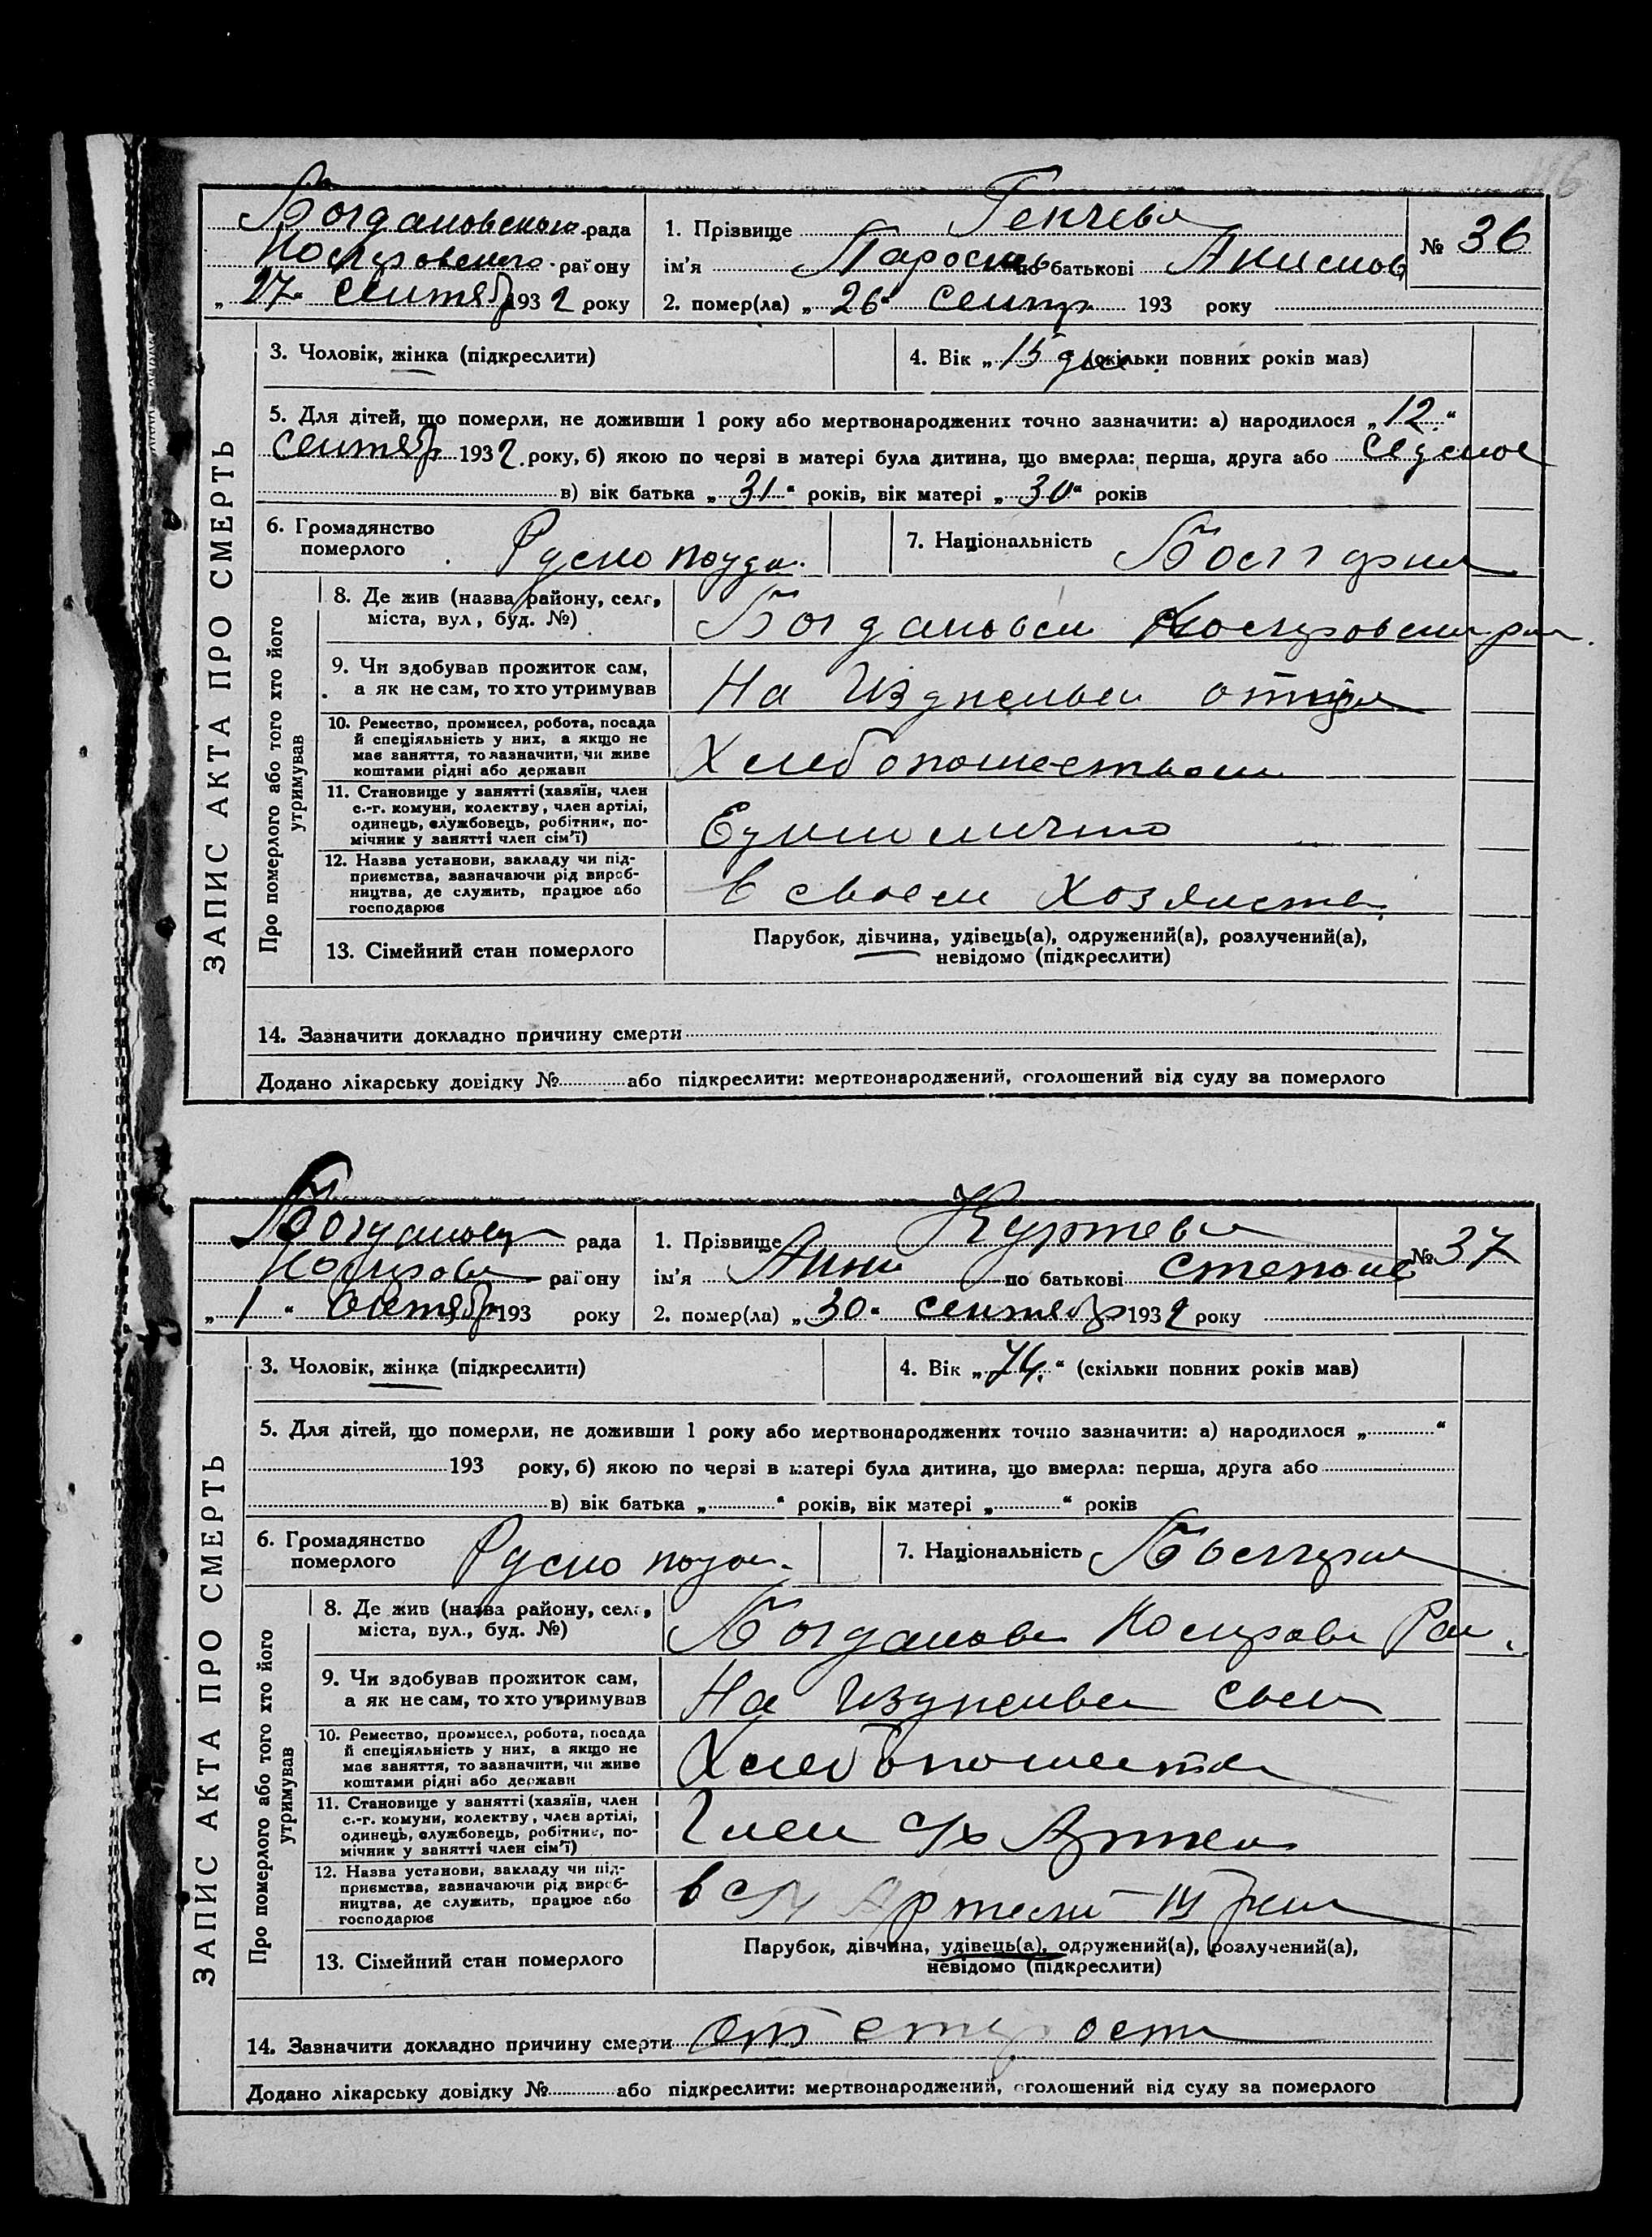 Богдановского рада
району
„27“ сентябр 1932 року
1. Прізвище Генчева
ім'я по батькові
№ 36
2. помер(ла) „26“ сентр 193 року
ЗАПИС АКТА ПРО СМЕРТЬ
3. Чоловік, жінка (підкреслити)
4. Вік „15 дн (скільки повних років мав)
5. Для дітей, що померли, не доживши 1 року або мертвонароджених точно зазначити: а) народилося „12“
сентябр 1932 року, б) якою по черзі в матері була дитина, що вмерла: перша, друга або седмое
в) вік батька „31“ років, вік матері „30“ років
6. Громадянство
померлого
7. Національність
Про померлого або того хто його
утримував
8. Де жив (назва району, села,
міста, вул, буд. №)
9. Чи здобував прожиток сам,
а як не сам, то хто утримував
На отця
10. Ремество, промисел, робота, посада
й спеціяльність у них, а якщо не
має заняття, то зазначити, чи живе
коштами рідні або держави
11. Становище у занятті (хазяїн, член
с.-г. комуни, колектву, член артілі,
одинець, службовець, робітник, по-
мічник у занятті член сім'ї)
Единолично
12. Назва установи, закладу чи під-
приємства, зазначаючи рід вироб-
ництва, де служить, працює або
господарює
в своем
13. Сімейний стан померлого
Парубок, дівчина, удівець(а), одружений(а), розлучений(а),
невідомо (підкреслити)
14. Зазначити докладно причину смерти
Додано лікарську довідку № або підкреслити: мертвонароджений, оголошений від суду за померлого
рада
району
„1“ 193 року
1. Прізвище Куртева
ім'я Анна по батькові Степанов
№ 37
2. помер(ла) „30“ сентябр 1932 року
ЗАПИС АКТА ПРО СМЕРТЬ
3. Чоловік, жінка (підкреслити)
4. Вік „74“ (скільки повних років мав)
5. Для дітей, що померли, не доживши 1 року або мертвонароджених точно зазначити: а) народилося „ “
193 року, б) якою по черзі в матері була дитина, що вмерла: перша, друга або
в) вік батька „ “ років, вік матері „ “ років
6. Громадянство
померлого
7. Національність
Про померлого або того хто його
утримував
8. Де жив (назва району, села,
міста, вул., буд. №)
9. Чи здобував прожиток сам,
а як не сам, то хто утримував
На
10. Ремество, промисел, робота, посада
й спеціяльність у них, а якщо не
має заняття, то зазначити, чи живе
коштами рідні або держави
11. Становище у занятті (хазяїн, член
с.-г. комуни, колектву, член артілі,
одинець, службовець, робітник, по-
мічник у занятті член сім'ї)
Член с/х Артел
12. Назва установи, закладу чи під-
приємства, зазначаючи рід вироб-
ництва, де служить, працює або
господарює
в Артели
13. Сімейний стан померлого
Парубок, дівчина, удівець(а), одружений(а), розлучений(а),
невідомо (підкреслити)
14. Зазначити докладно причину смерти от старости
Додано лікарську довідку № або підкреслити: мертвонароджений, оголошений від суду за померлого